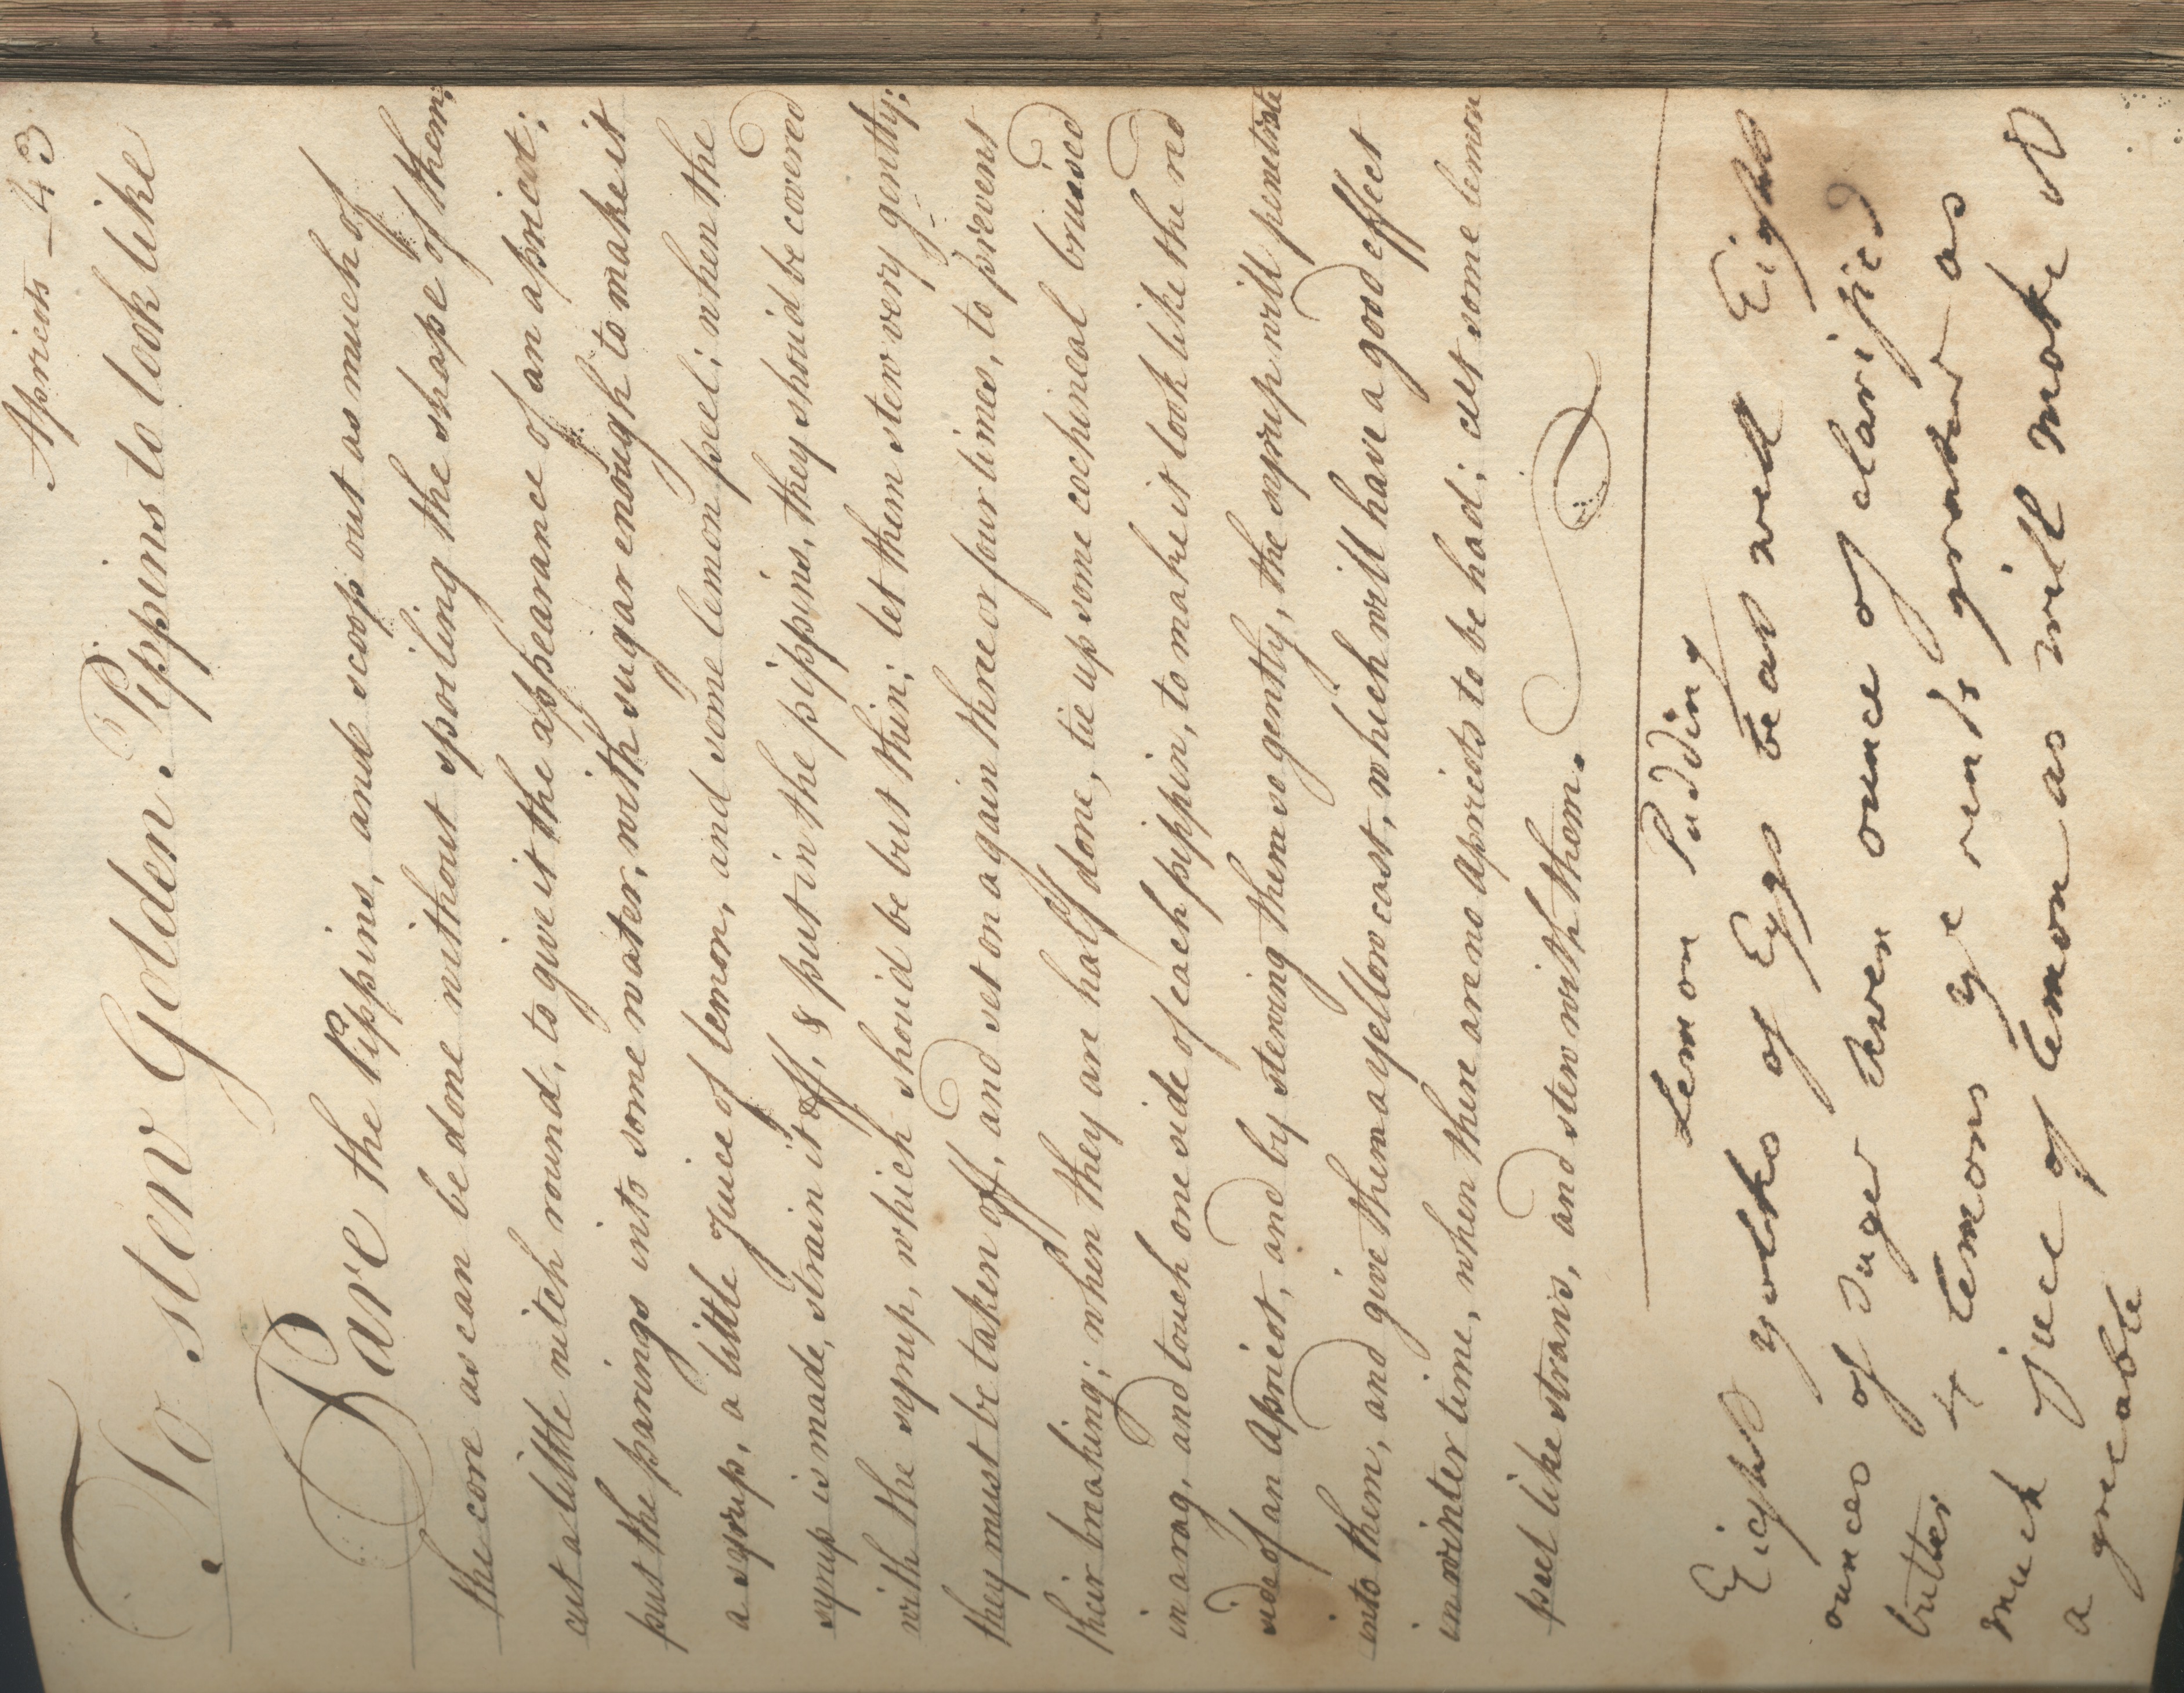 Apricots 43
To stew Golden Pippins to look like
Pare the Pippins, and scoop out as much of
the core as can be done without spoiling the shape of them;
cut a little nitch round, to give it the appearance of an apricot;
put the parings into some water, with sugar enough to make it
a syrup, a little juice of lemon, and some lemon peel; when the
syrup is made, strain it off, & put in the pippins, they should be covered
with the syrup, which should be but thin; let them stew very gently;
they must be taken off, and set on again three or four times, to prevent
their breaking; when they are half done, tie up some cochineal bruised
in a rag, and touch one side of each pippin, to make it look like the red
side of an apricot, and by stewing them so gently, the syrup will penetrate
into them, and give them a yellow cast, which will have a good effect
in winter time, when there are no apricots to be had; cut some lemon
peel like straws, and stew with them.
Lemon Pudding
Eight yolks of Eggs beat well Eight
ounces of Suger seven ounce of clarified
butter 4 lemons ye rints grated as
much juce of lemon as will make it
a greeable